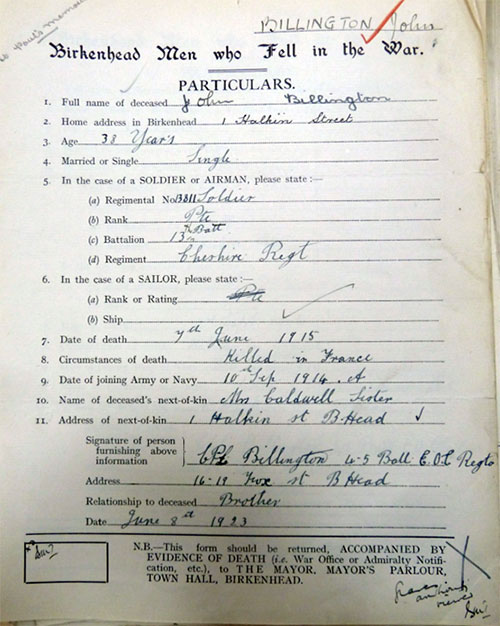 to Paul's memor
BILLINGTON John
Birkenhead Men who Fell in the War.
PARTICULARS.
1. Full name of deceased John Billington
2. Home address in Birkenhead 1 Halkin Street
3. Age 38 Year's
4. Married or Single Single
5. In the case of a SOLDIER or AIRMAN, please state :—
(a) Regimental No Soldier
(b) Rank Pte
(c) Battalion 13th Batt
(d) Regiment Cheshire Regt
6. In the case of a SAILOR, please state :—
(a) Rank or Rating Pte
(b) Ship
7. Date of death 7th June 1915
8. Circumstances of death Killed in France
9. Date of joining Army or Navy 10th Sep 1914.
10. Name of deceased's next-of-kin Mrs Caldwell Sister
11. Address of next-of-kin 1 Halkin st B.Head
Signature of person
furnishing above
information Billington 4-5 Batt Regt
Address 16-19 st B Head
Relationship to deceased Brother
Date June 8th 1923
N.B.—This form should be returned, ACCOMPANIED BY
EVIDENCE OF DEATH (i.e. War Office or Admiralty Notifi-
cation, etc.), to THE MAYOR, MAYOR'S PARLOUR,
TOWN HALL, BIRKENHEAD.